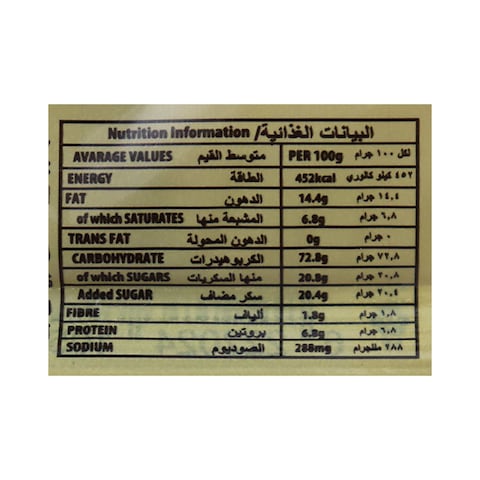 Nutrition Information / البيانات الغذائية
AVARAGE VALUES متوسط القيم PER 100g لكل ١٠٠ جرام
ENERGY الطاقة 452kcal ٤٥٢ كيلو كالوري
FAT الدهون 14.4g ١٤،٤ جرام
of which SATURATES المشبعة منها 6.8g ٦،٨ جرام
TRANS FAT الدهون المحولة 0g ٠ جرام
CARBOHYDRATE الكربوهيدرات 72.8g ٧٢،٨ جرام
of which SUGARS منها السكريات 20.8g ٢٠،٨ جرام
Added SUGAR سكر مضاف 20.4g ٢٠،٤ جرام
FIBRE ألياف 1.8g ١،٨ جرام
PROTEIN بروتين 6.8g ٦،٨ جرام
SODIUM الصوديوم 288mg ٢٨٨ مللجرام